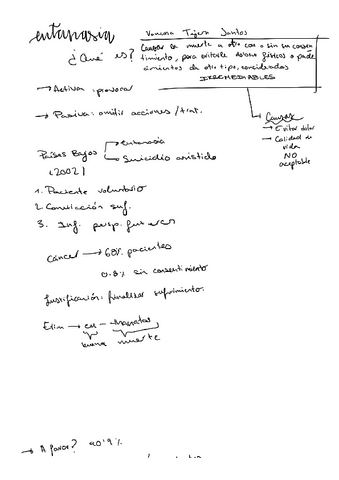 eutanasia
Vanessa Tejera Santos
¿Qué es?
Causar la muerte a otro con o sin su consen
timiento, para evitarle dolores físicos o pade
cimientos de otro tipo, considerados
IRREMEDIABLES
→ Activa: provocar
→ Pasiva: omitir acciones / trat.
Causas
→ Evitar dolor
→ Calidad de
vida
NO
aceptable
Países Bajos
(2002)
→ Eutanasia
→ Suicidio asistido
1. Paciente voluntario
2.
suf.
3. Inf. persp. futuras
Cáncer → 68% pacientes
0.8% sin consentimiento
Justificación: finalizar sufrimiento.
Etim → eu – thanatos
buena muerte
→ A favor?